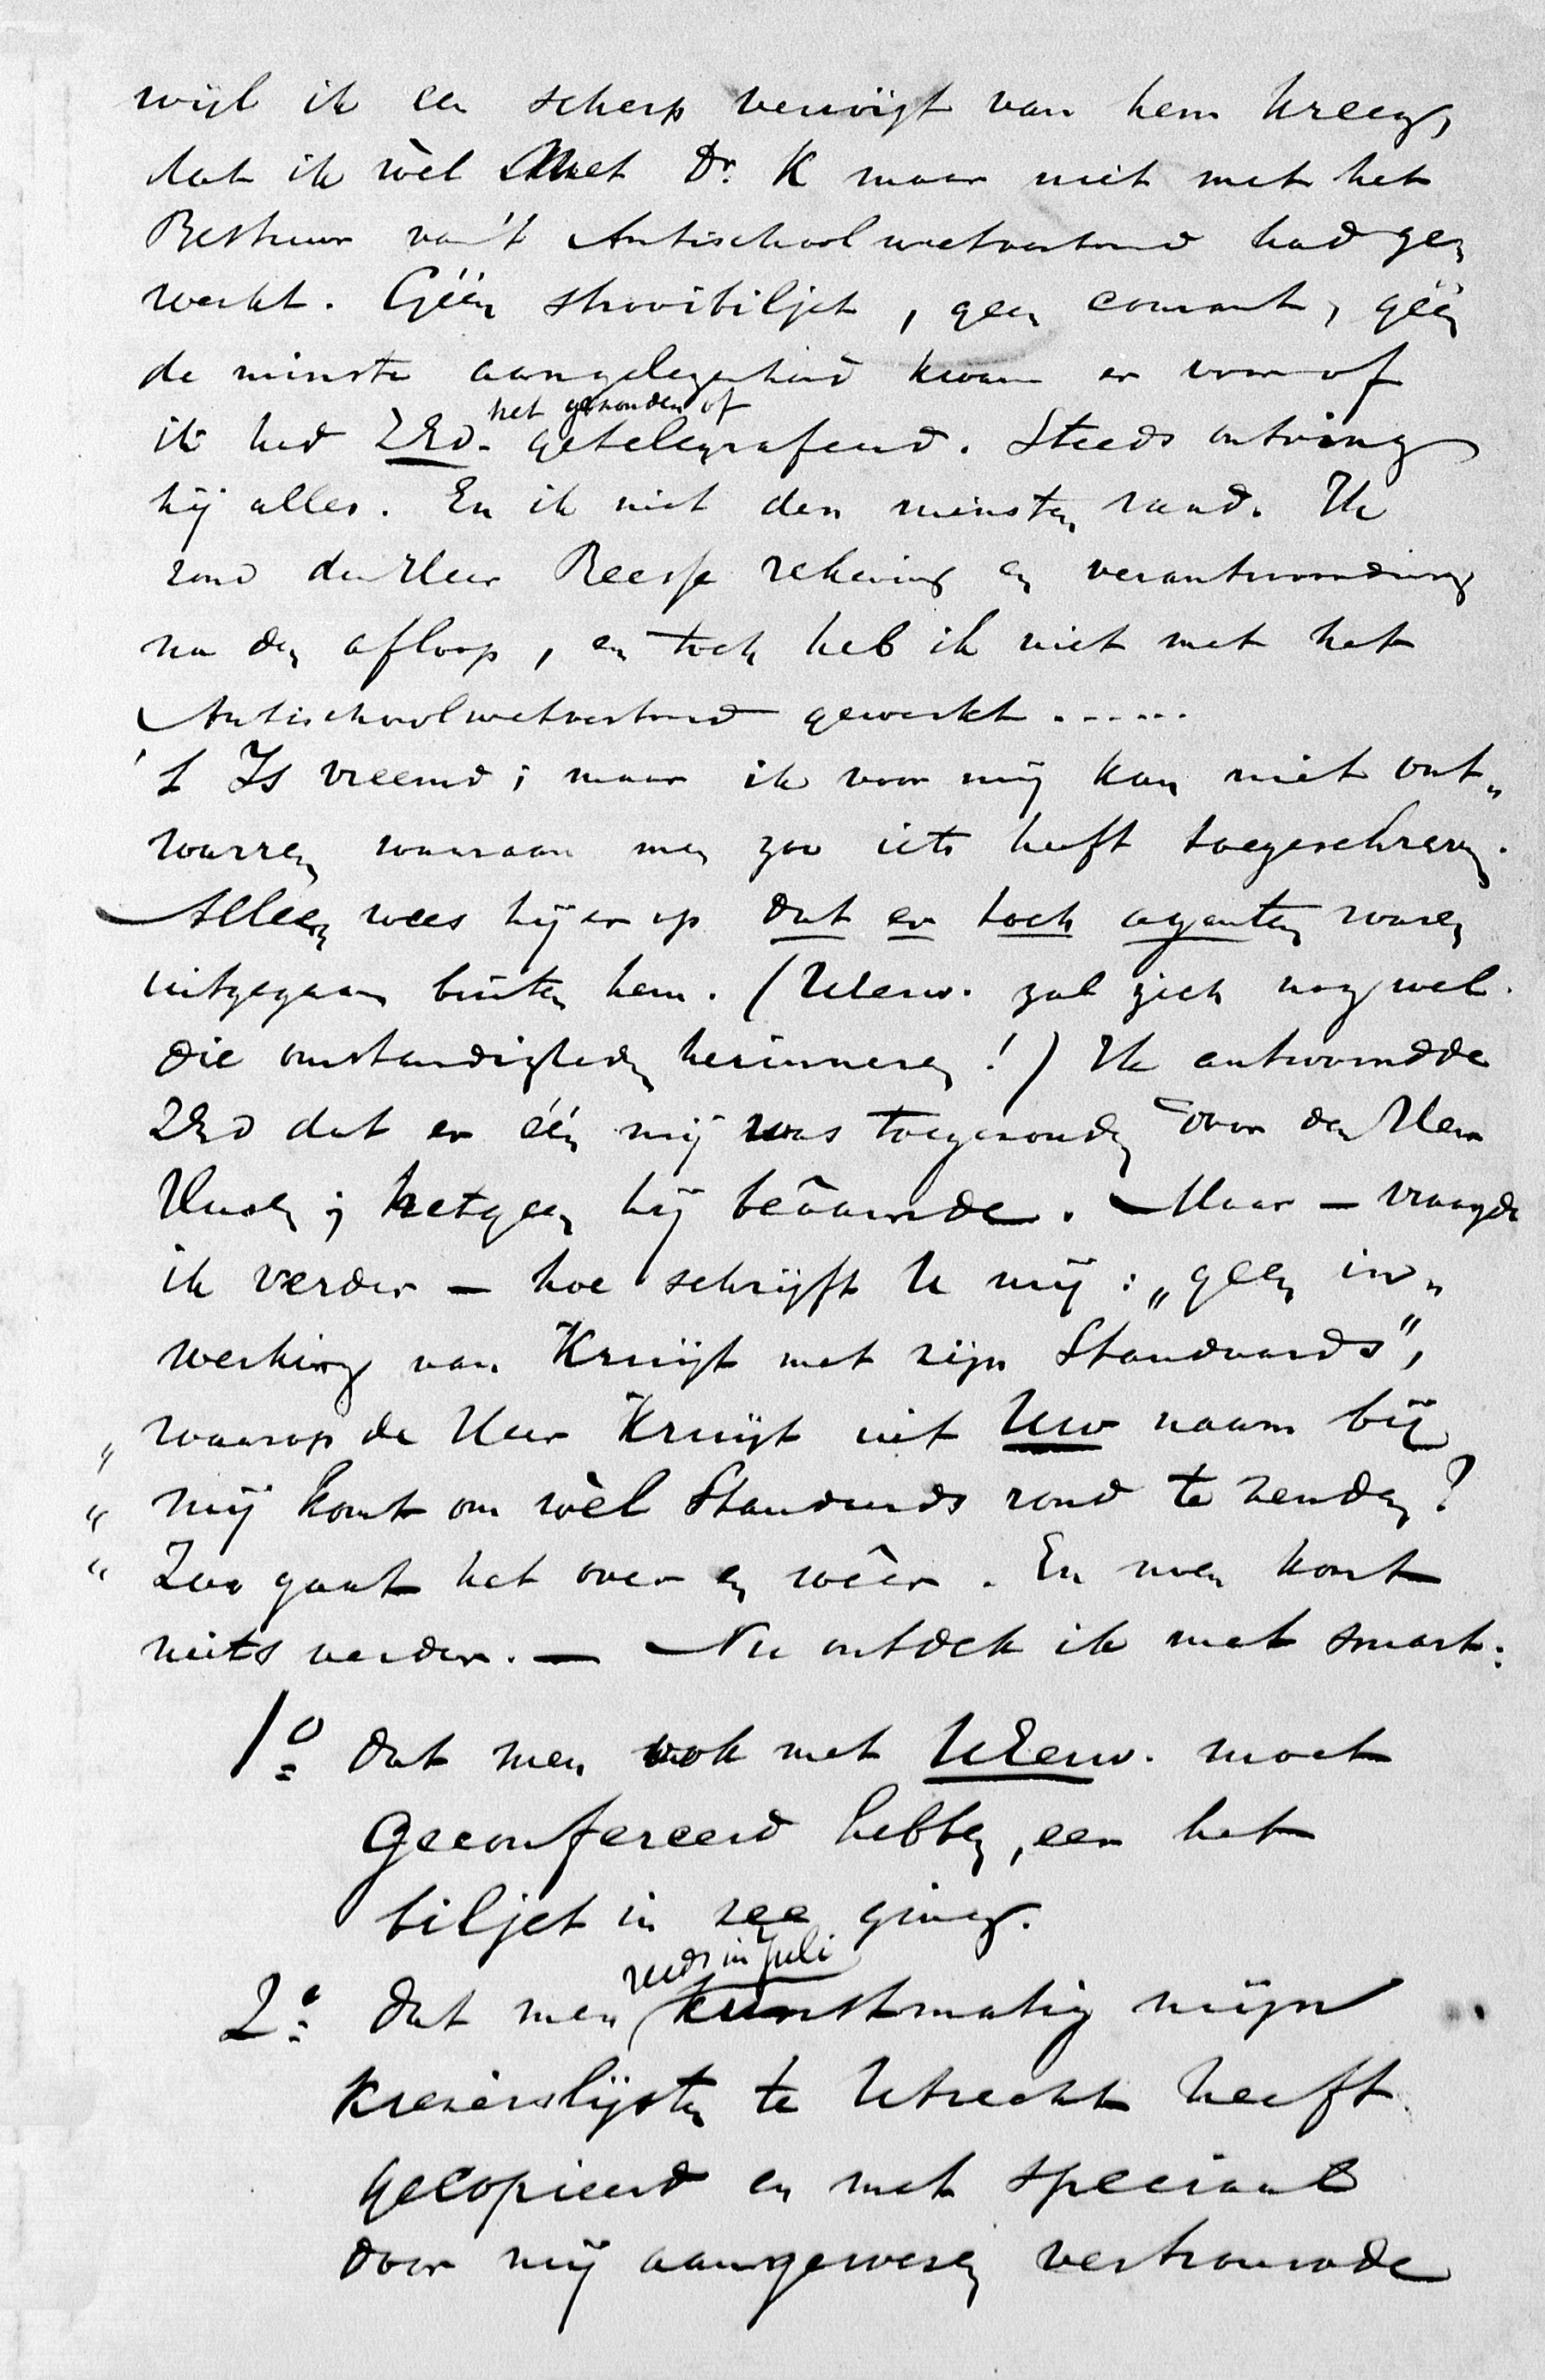 wijl ik een scherp verwijt van hem kreeg,
dat ik wèl met Dr. K maar niet met het
Bestuur van 't Antischoolwetverbond had ge„
werkt. Géén strooibiljet, geen courant, géén
de minste aangelegenheid kwam er voor of
het gezonden of
ik had ZEd. getelegrafeerd. Steeds ontving
hij alles. En ik niet den minsten raad. Ik
zond den Heer Beeste rekening en verantwoording
na den afloop, en toch heb ik niet met het
Antischoolwetverbond gewerkt ......
't Is vreemd; maar ik voor mij kan niet ont„
warren waaraan men zoo iets heeft toegeschreven.
Alleen wees hij er op dat er toch agenten waren
uitgegaan buiten hem. (UEerw. zal zich nog wel
die omstandigheden herinneren!) Ik antwoordde
ZEd dat er één mij was toegezonden door den Heer
; hetgeen hij beâamde. Maar — vraagde
ik verder — hoe schrijft U mij: „geen in„
werking van Kruijt met zijn Standaards",
„ waarop de Heer Kruijt uit Uw naam bij
“ mij komt om wèl Standaards rond te zenden?
“ Zoo gaat het over en wêer. En men komt
niets verder. — Nu ontdek ik met smart:
1o dat men ook met UEerw. moet
geconfereerd hebben, eer het
biljet in zee ging.
reeds in Juli
2o dat men kunstmatig mijn
kiezerslijsten te Utrecht heeft
gecopieerd en met speciaal
door mij aangewezen vertrouwde